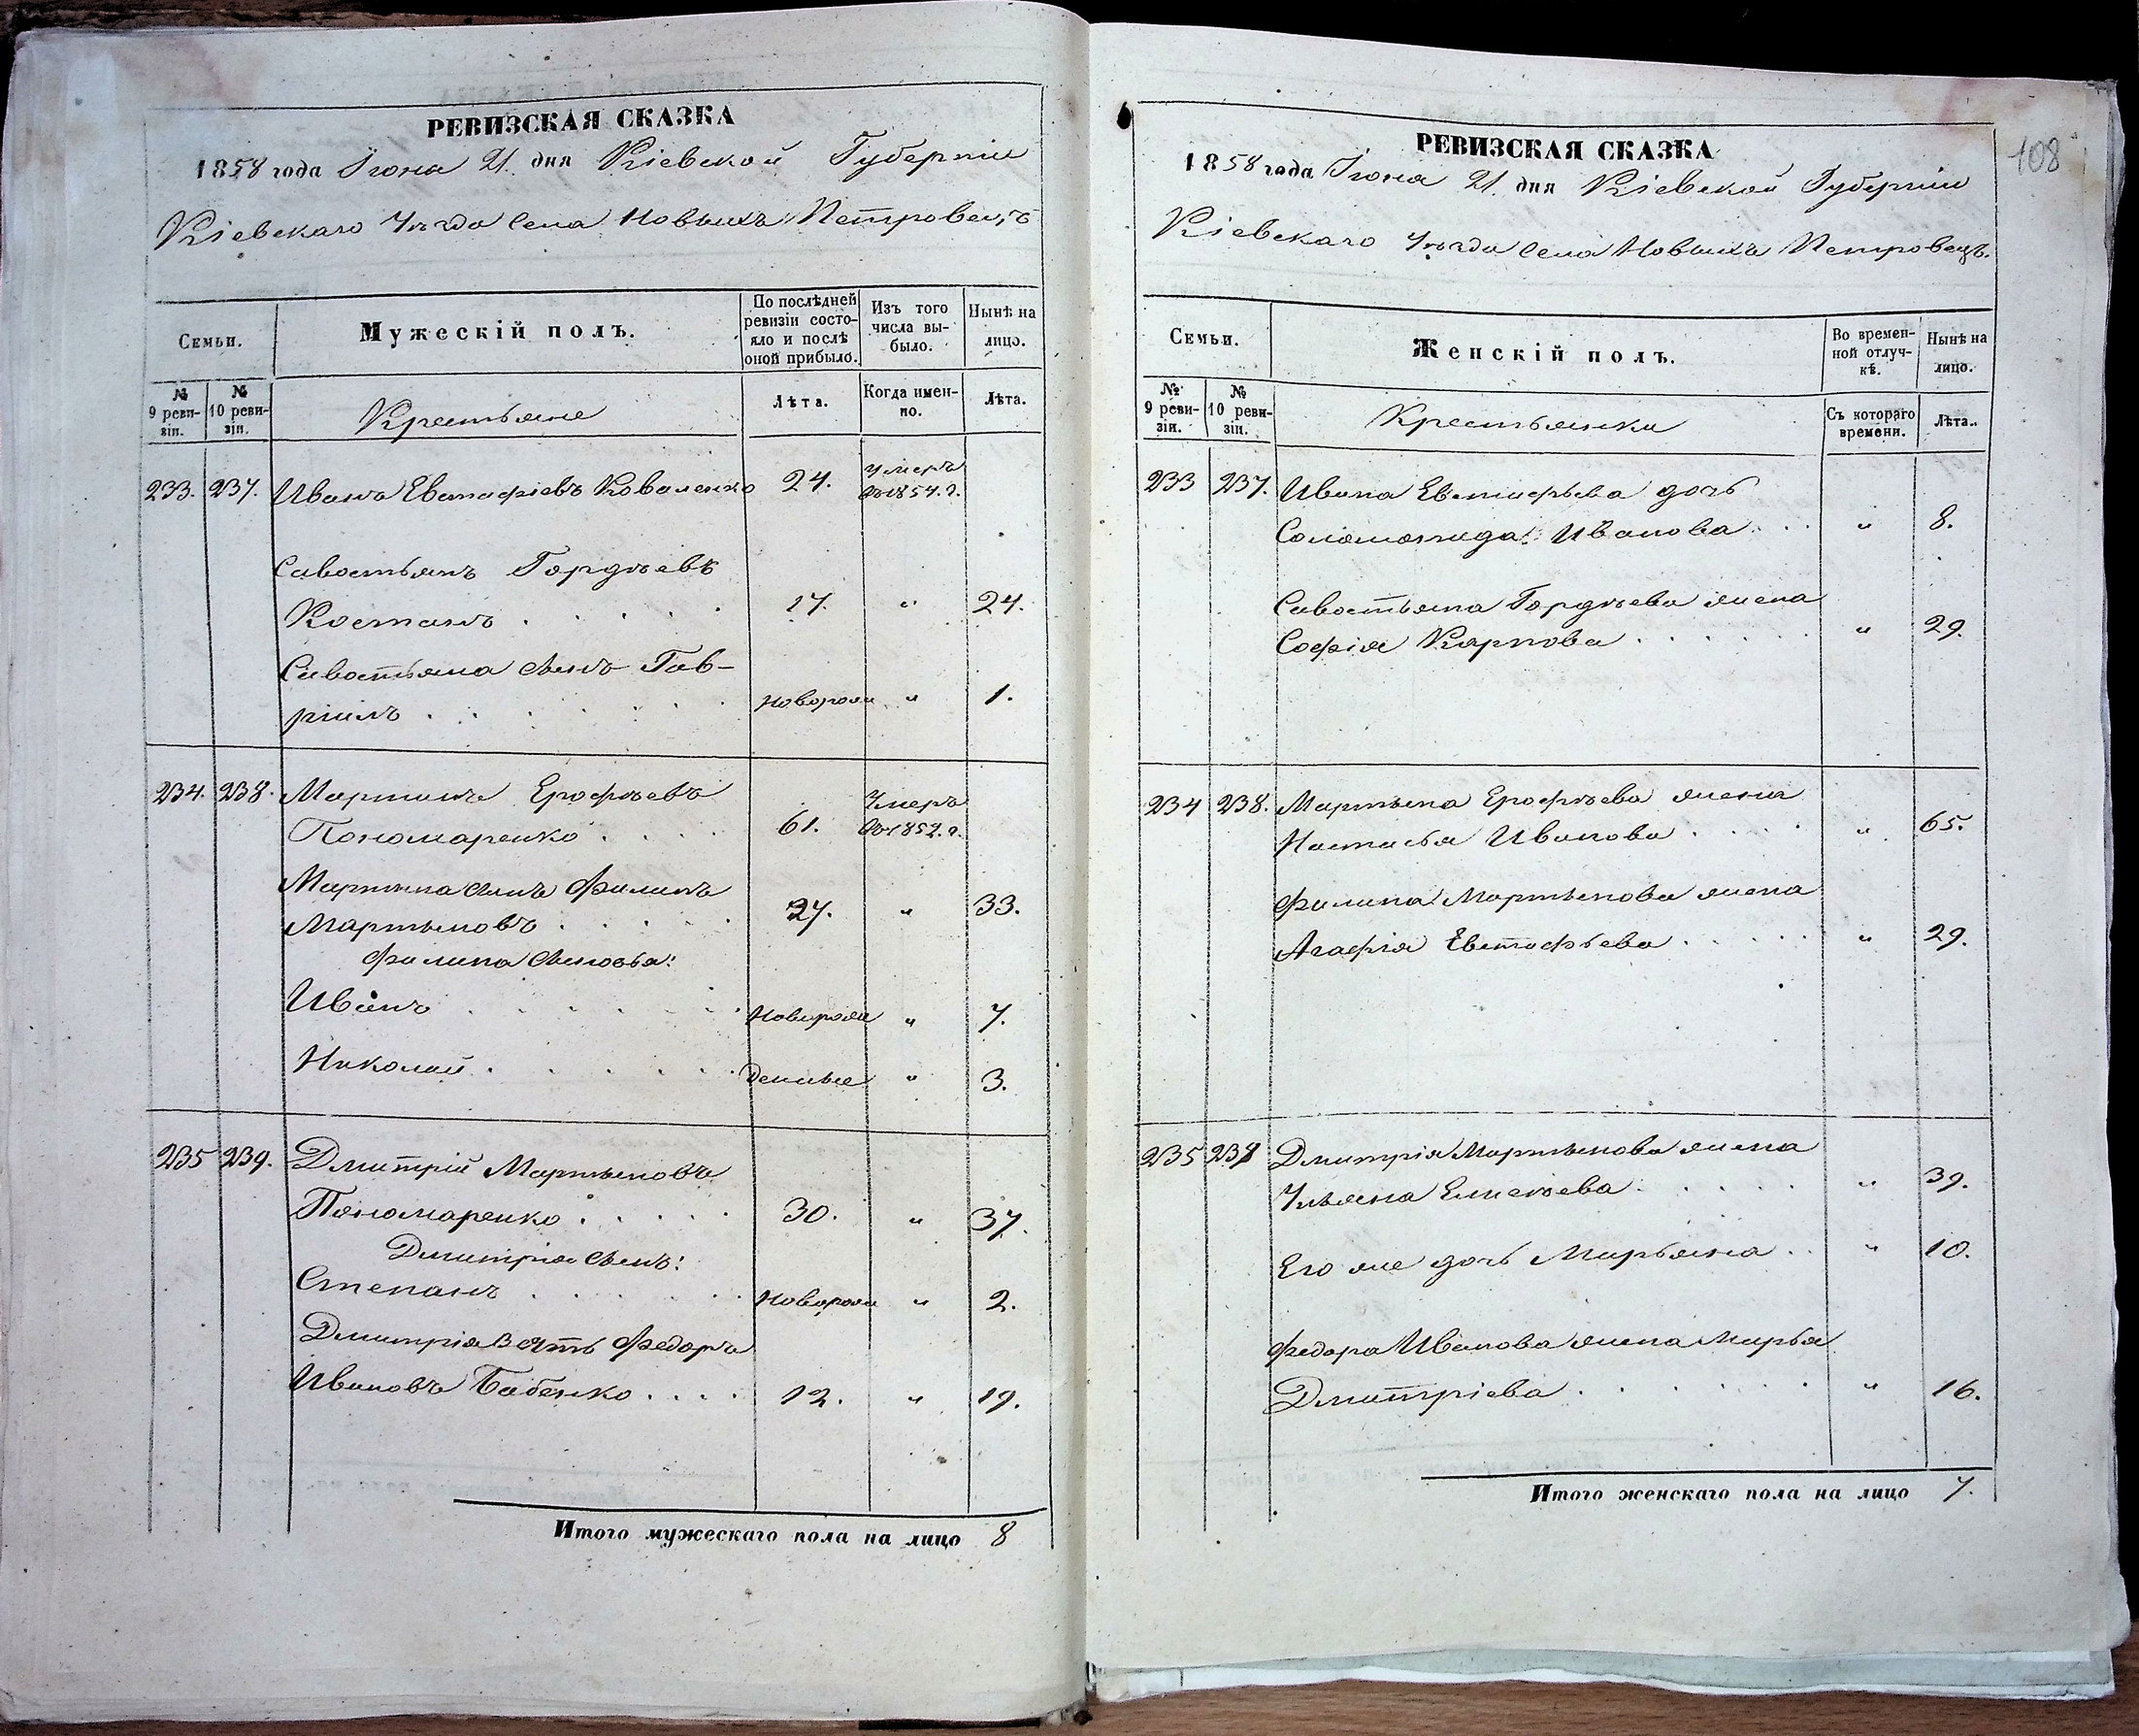 РЕВИЗСКАЯ СКАЗКА
1858 года Іюня 21. дня Кіевской Губерніи
Кіевскаго Уѣзда Села Новыхъ Петровецъ
Семьи.
Мужескій полъ.
По послѣдней ревизіи состояло и послѣ оной прибыло.
Изъ того числа выбыло.
Нынѣ на лицо.
№ 9 ревизіи.
№ 10 ревизіи.
Крестьяне
Лѣта.
Когда именно.
Лѣта.
233. 237. Иванъ Евстафіевъ Коваленко 24. умеръ въ 1854. г.
Савостьянъ Гордѣевъ
Костанъ . . . . . 17. " 24.
Савостьяна сынъ Гав-
ріилъ . . . . . . новорож " 1.
234. 238. Мартынъ Ерофѣевъ
Пономаренко . . . . 61. Умеръ въ 1852. г.
Мартына сынъ Филипъ
Мартыновъ . . . . 27. " 33.
Филипа сыновья:
Иванъ . . . . . . Новорож " 7.
Николай . . . . . . денные " 3.
235 239. Дмитрій Мартыновъ
Пономаренко . . . . . 30. " 37.
Дмитрія сынъ:
Степанъ . . . . . . новорож " 2.
Дмитрія зять Федоръ
Ивановъ Бабенко . . . . 12. " 19.
Итого мужескаго пола на лицо 8
108
РЕВИЗСКАЯ СКАЗКА
1858 года Іюня 21. дня Кіевской Губерніи
Кіевскаго Уѣзда Села Новыхъ Петровецъ.
Семьи.
Женскій полъ.
Во временной отлучкѣ.
Нынѣ на лицо.
№ 9 ревизіи.
№ 10 ревизіи.
Крестьянки
Съ котораго времени.
Лѣта.
233 237. Ивана Евстафьева дочь
Соломонида Иванова . . . " 8.
Савостьяна Гордѣева жена
София Карпова . . . . . . " 29.
234 238. Мартына Ерофѣева жена
Настасья Иванова . . . . " 65.
Филипа Мартынова жена
Агафія Евстафьева . . . . . " 29.
235 239 Дмитрія Мартынова жена
Ульяна Елисѣева . . . . . " 39.
Его же дочь Марьяна . . " 10.
Федора Иванова жена Марья
Дмитріева . . . . . . . " 16.
Итого женскаго пола на лицо 7.